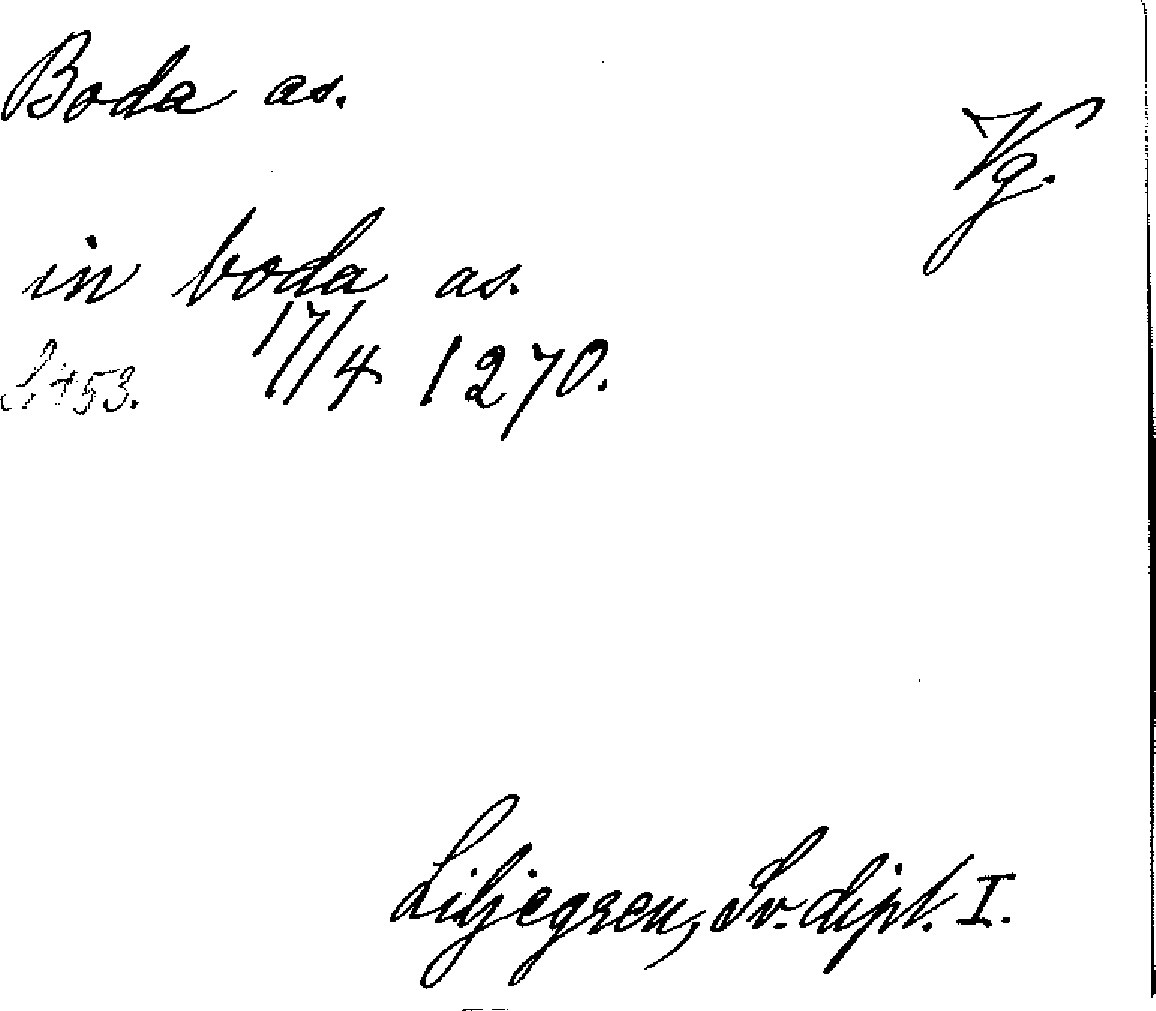 Boda as.
Vg.
in boda as.
S 453. 17/4 1270.
Liljegren, Sv. dipl. I.